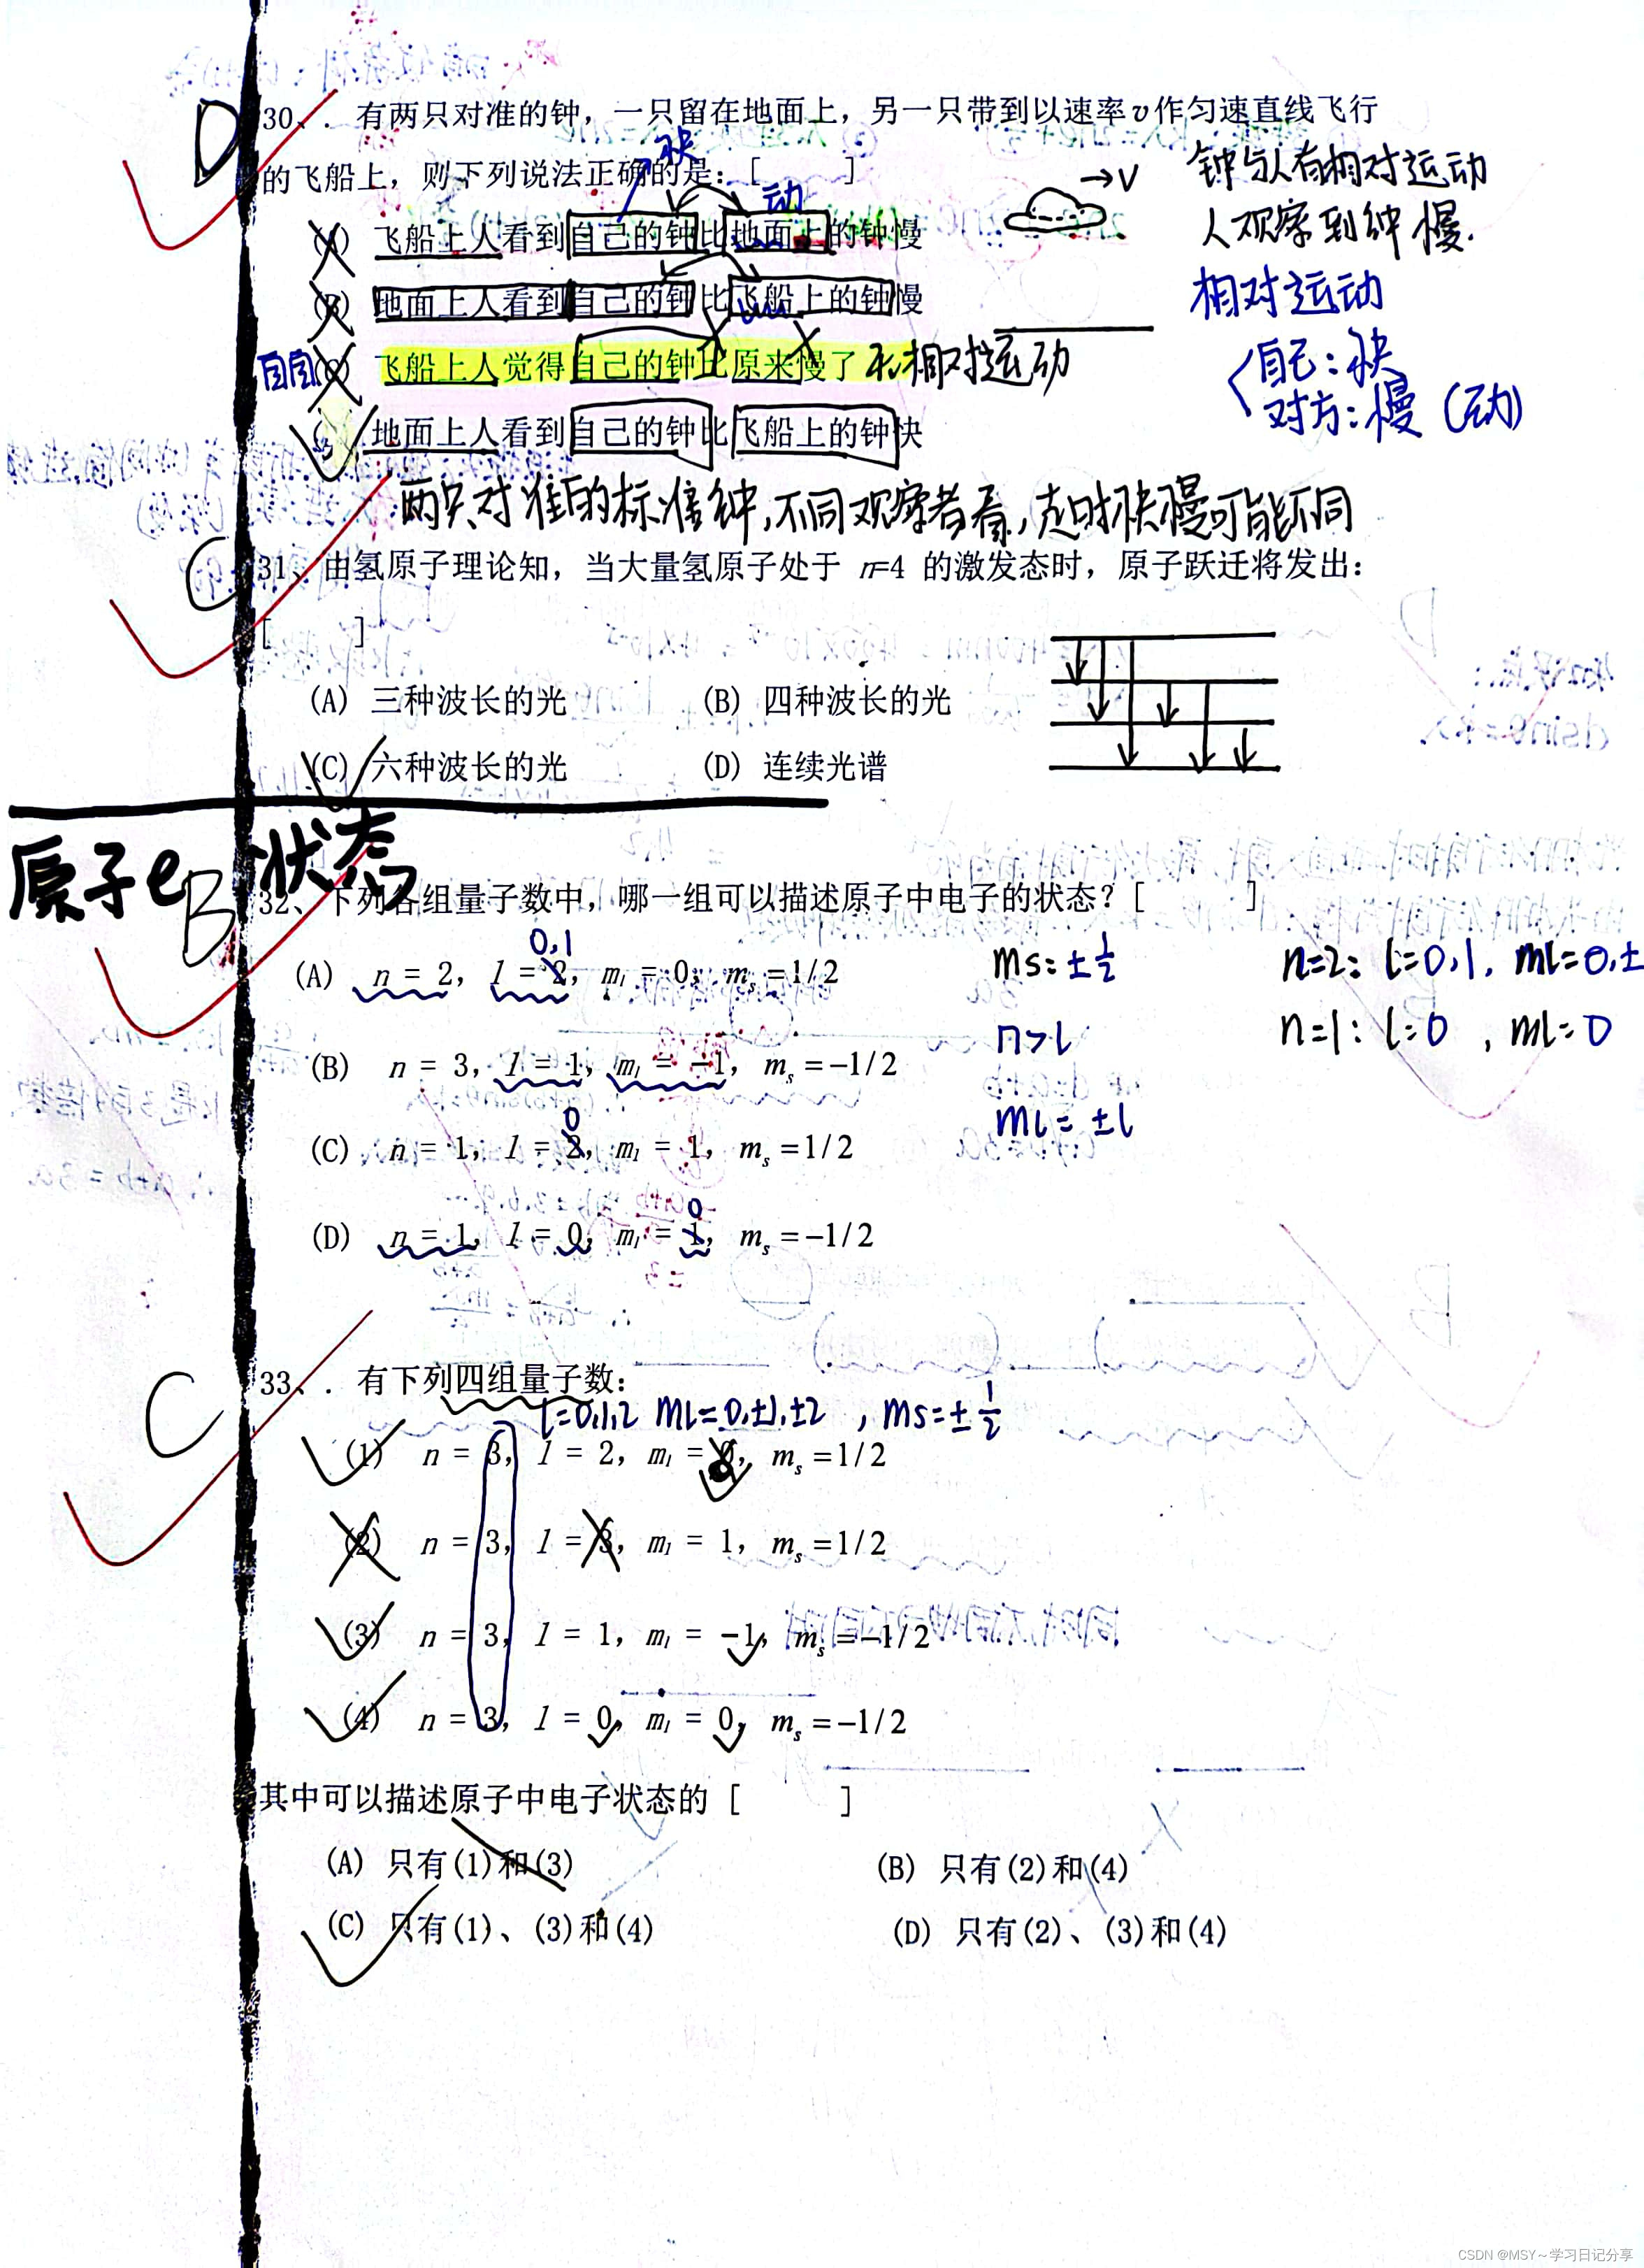 D
30、. 有两只对准的钟，一只留在地面上，另一只带到以速率v作匀速直线飞行
的飞船上，则下列说法正确的是：[ ]
快
动
→V
钟与人有相对运动
人观察到钟慢.
(A) 飞船上人看到自己的钟比地面上的钟慢
(B) 地面上人看到自己的钟比飞船上的钟慢
相对运动
(C) 飞船上人觉得自己的钟比原来慢了 无相对运动
自己：快
对方：慢（动）
地面上人看到自己的钟比飞船上的钟快
两只对准的标准钟，不同观察者看，走时快慢可能不同
C
31、由氢原子理论知，当大量氢原子处于 n=4 的激发态时，原子跃迁将发出：
[ ]
(A) 三种波长的光 (B) 四种波长的光
(C) 六种波长的光 (D) 连续光谱
原子e 状态
B
32、下列各组量子数中，哪一组可以描述原子中电子的状态？[ ]
0,1
(A) n = 2, l = 2, ml = 0, ms = 1/2
ms=±1/2
n=2: l=0,1, ml=0,±
(B) n = 3, l = 1, ml = -1, ms = -1/2
n>l
n=1: l=0, ml=0
ml=±l
0
(C) n = 1, l = 2, ml = 1, ms = 1/2
0
(D) n = 1, l = 0, ml = 1, ms = -1/2
C
33、. 有下列四组量子数：
l=0,1,2 ml=0,±1,±2, ms=±1/2
(1) n = 3, l = 2, ml = 0, ms = 1/2
(2) n = 3, l = 3, ml = 1, ms = 1/2
(3) n = 3, l = 1, ml = -1, ms = -1/2
(4) n = 3, l = 0, ml = 0, ms = -1/2
其中可以描述原子中电子状态的 [ ]
(A) 只有(1)和(3) (B) 只有(2)和(4)
(C) 只有(1)、(3)和(4) (D) 只有(2)、(3)和(4)
CSDN @MSY～学习日记分享